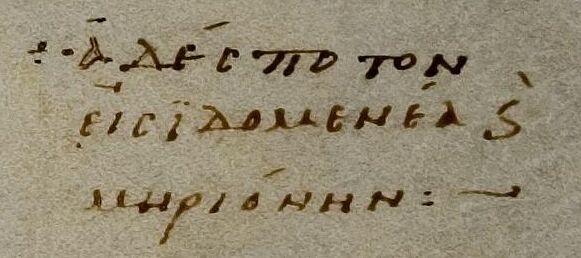 :· ἀδέσποτον
εἰς ἰ̈δομενέα ϛ̀
μηριόνην: ~